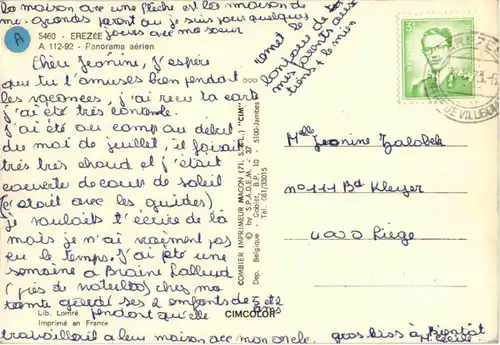 la maison avec une flèche est la maison de
me grands parent où je suis pour quelques
jours avec ma soeur
A
5460 - EREZÉE
A 112-92 - Panorama aérien
Chère Jeanine, J'espère
que tu t'amuses bien pendant
les vacances, j'ai reçu ta carte
j'ai été très contente.
J'ai été au camp au début
du moi de juillet, il faisait
très très chaud et j'était
couverte de coups de soleil
(c'était avec les guides)
je voulais t'écrire de là
mais je n'ai vraiment pas
eu le temps. J'ai été une
semaine à Braine l'alleud
(près de Waterloo) chez ma
tante garder ses 2 enfants de 5 et 2
ans
pendant qu'elle
travaillait à leur maison avec mon oncle.
gros biss à Bientôt
le
bonjour de
mes parents
tions + le mien
Lib. Lomré
Imprimé en France
COMBIER IMPRIMEUR MACON (71, S.-&-L.) "CIM"
© by S.P.A.D.E.M.
Dep. Belgique - Goblet, B.P. 10 - 5100-Jambes
Tél. 081/33015
CIMCOLOR
Melle Jeanine Zalobek
n° 111 Bd Kleyer
4000 Liège